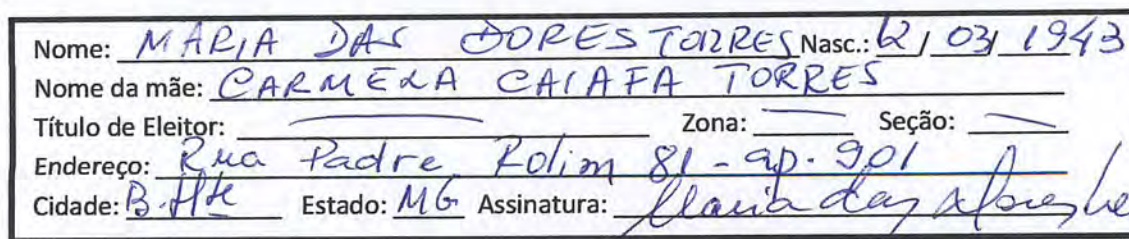 Nome: MARIA DAS DORES TORRES Nasc.: 12 / 03 / 1943
Nome da mãe: CARMELA CAIAFA TORRES
Título de Eleitor: Zona: Seção:
Endereço: Rua Padre Rolim 81 - ap. 901
Cidade: B. Hte Estado: MG Assinatura: Maria das